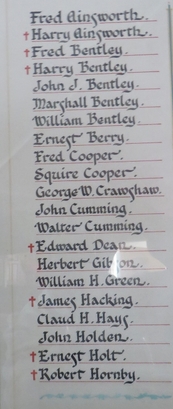 Fred Ainsworth.
†Harry Ainsworth.
†Fred Bentley.
†Harry Bentley.
John J. Bentley.
Marshall Bentley.
William Bentley.
Ernest Berry.
Fred Cooper.
Squire Cooper.
George W. Crawshaw.
John Cumming.
Walter Cumming.
†Edward Dean.
Herbert Gibson.
William H. Green.
†James Hacking.
Claud H. Hays.
John Holden.
†Ernest Holt.
†Robert Hornby.